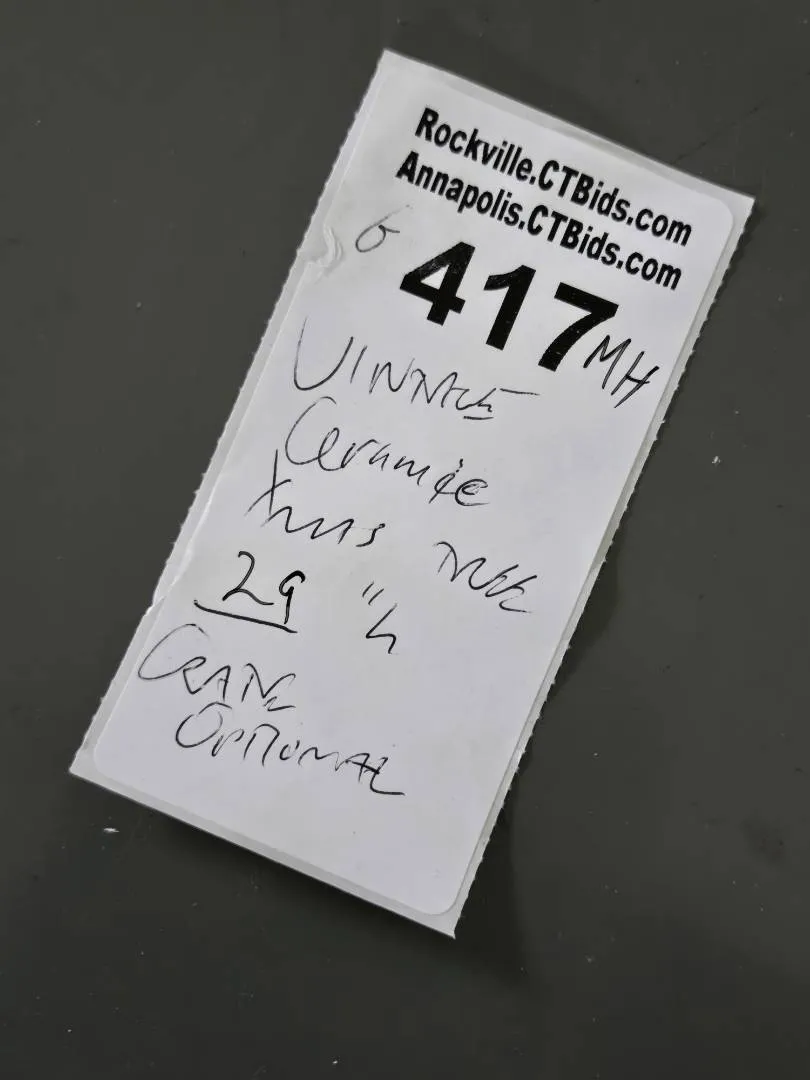 Rockville.CTBids.com
Annapolis.CTBids.com
6 417 MH
VINTAGE
Ceramic
Xmas TREE
29 "h
CRATE
OPTIONAL